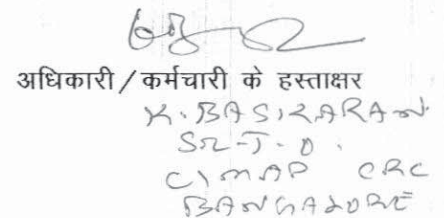 अधिकारी/कर्मचारी के हस्ताक्षर
K. BASKARAN
Sr. T. O.
CIMAP CRC
BANGALORE